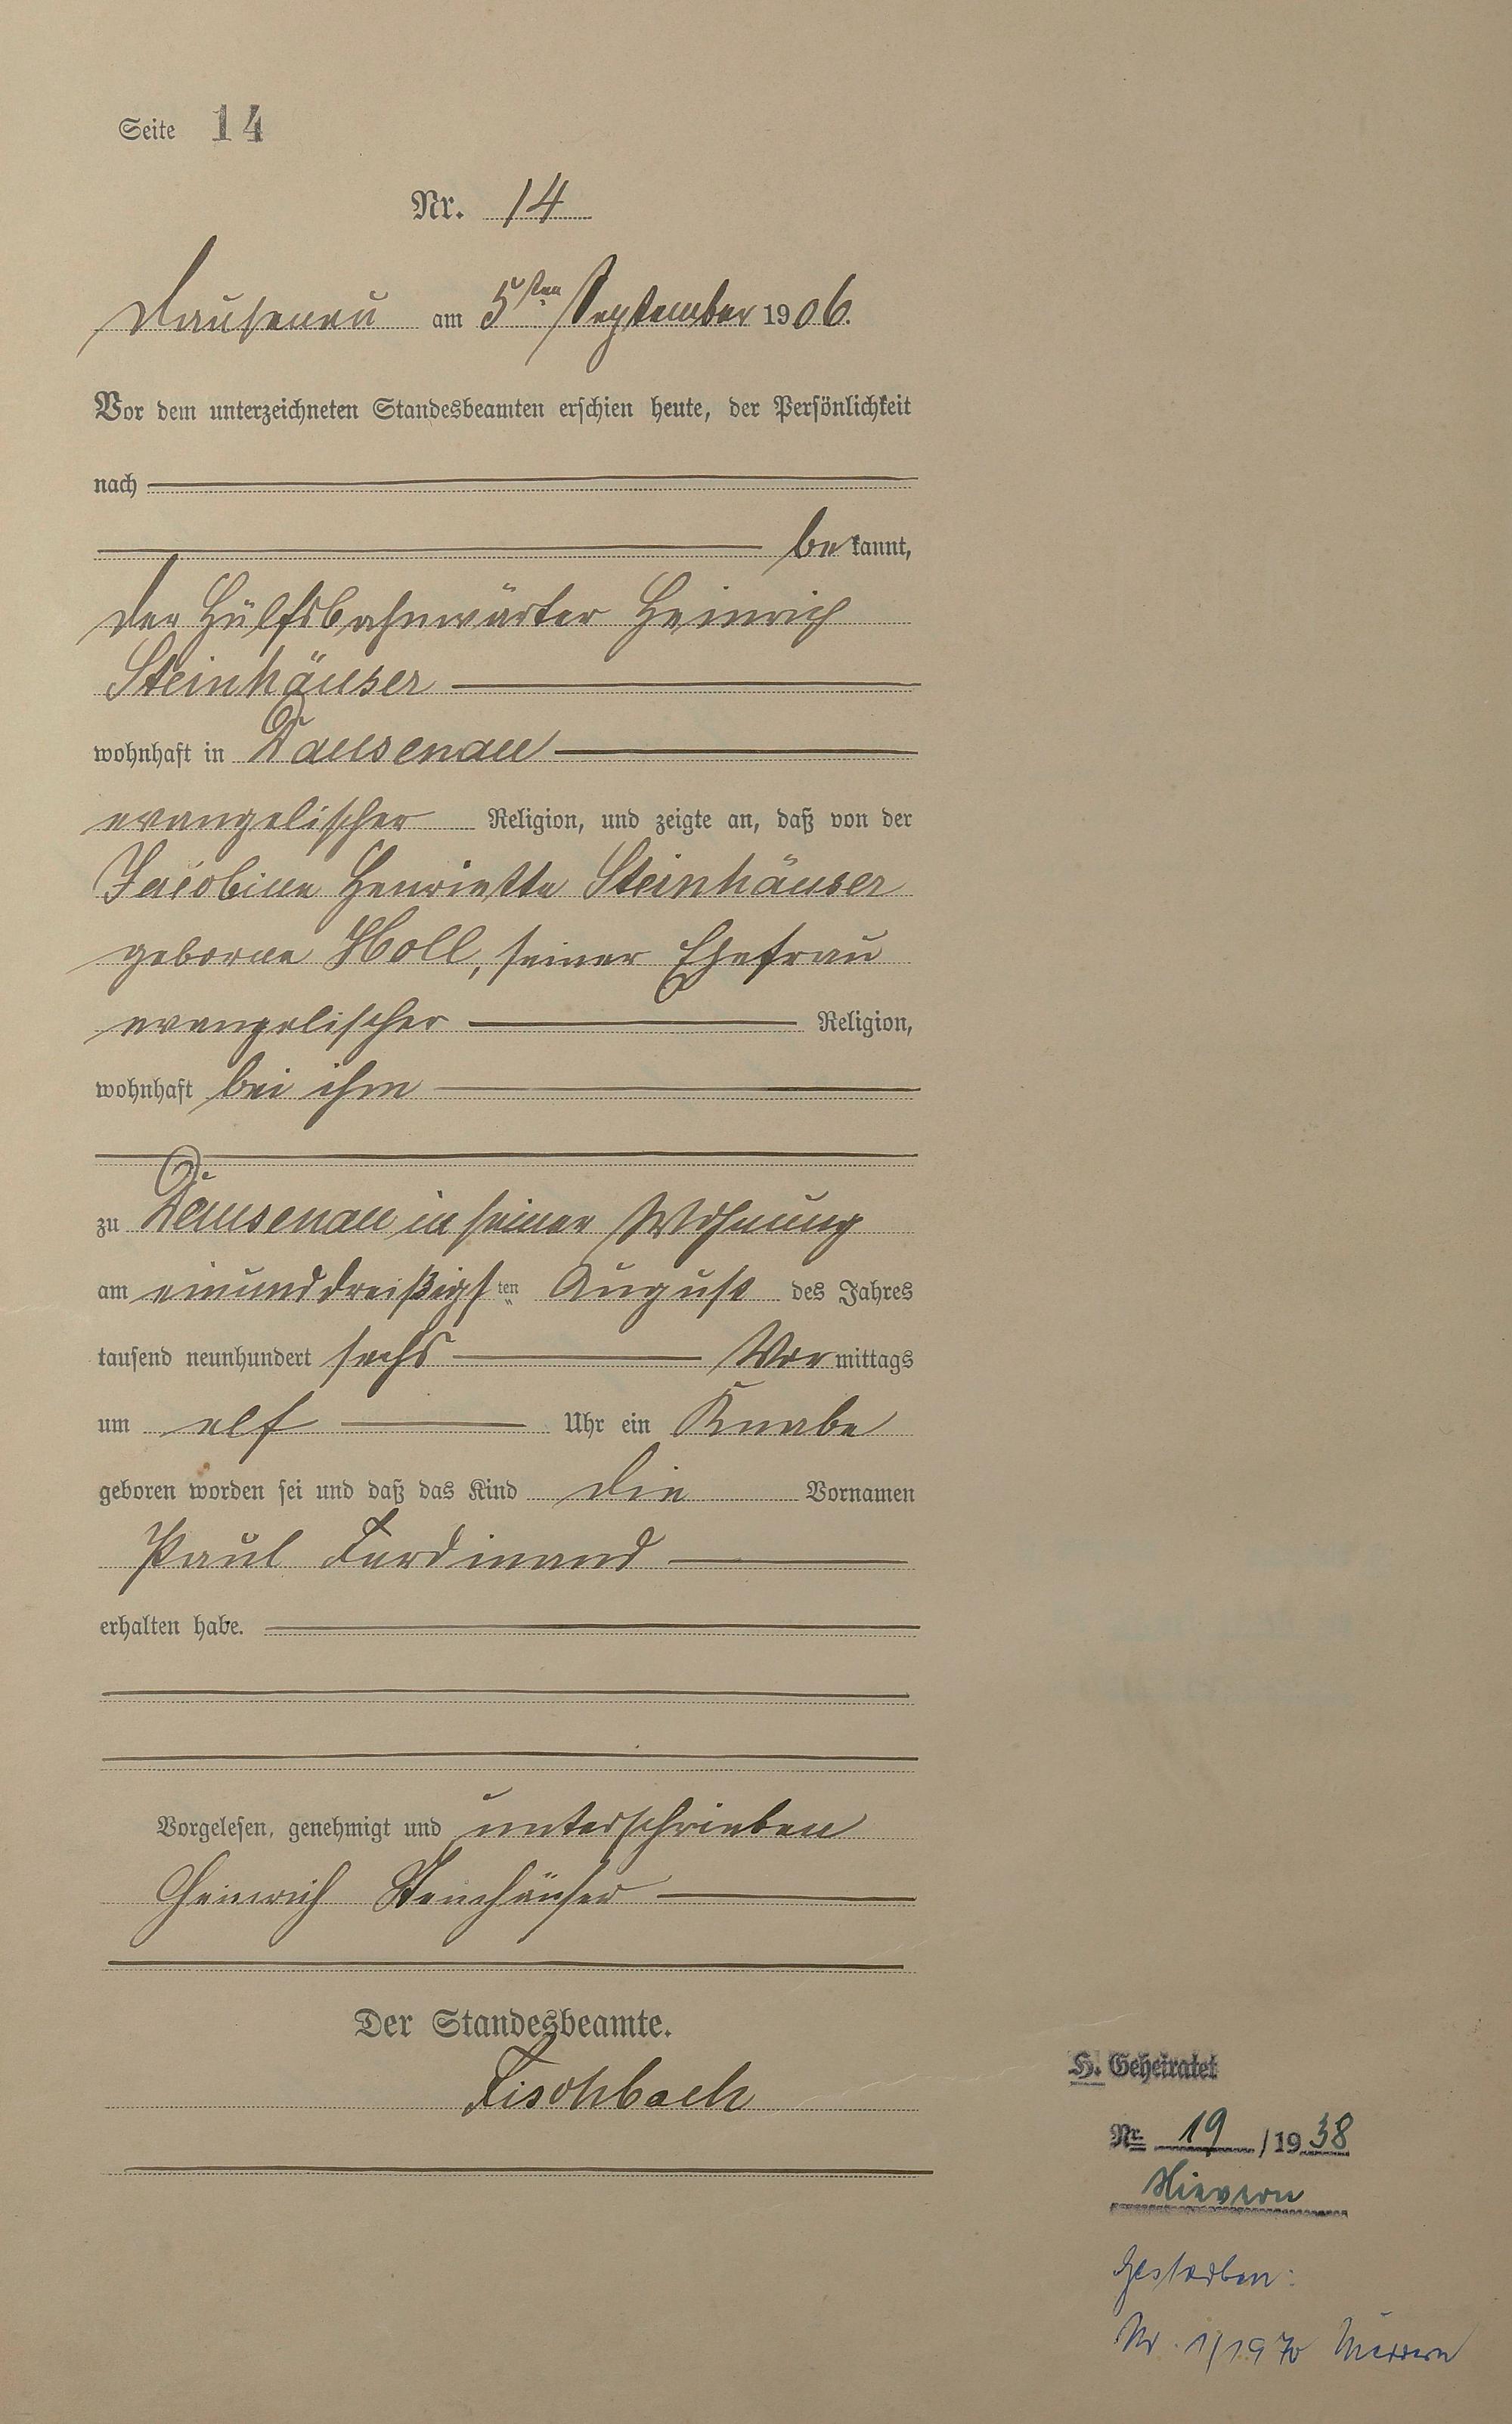 Seite 14
Nr. 14
Dausenau am 5ten September 1906.
Vor dem unterzeichneten Standesbeamten erschien heute, der Persönlichkeit
nach
bekannt,
der Hülfsbahnwärter Heinrich
Steinhäuser
wohnhaft in Dausenau
evangelischer Religion, und zeigte an, daß von der
Jacobine Henriette Steinhäuser
geborne Holl, seiner Ehefrau
evangelischer Religion,
wohnhaft bei ihm
zu Dausenau in seiner Wohnung
am einunddreißigsten August des Jahres
tausend neunhundert sechs Vormittags
um elf Uhr ein Knabe
geboren worden sei und daß das Kind die Vornamen
Paul Ferdinand
erhalten habe.
Vorgelesen, genehmigt und unterschrieben
Heinrich Steinhäuser
Der Standesbeamte.
Fischbach
H. Geheiratet
Nr. 19 / 1938
Nievern
Gestorben:
Nr. 1/1970